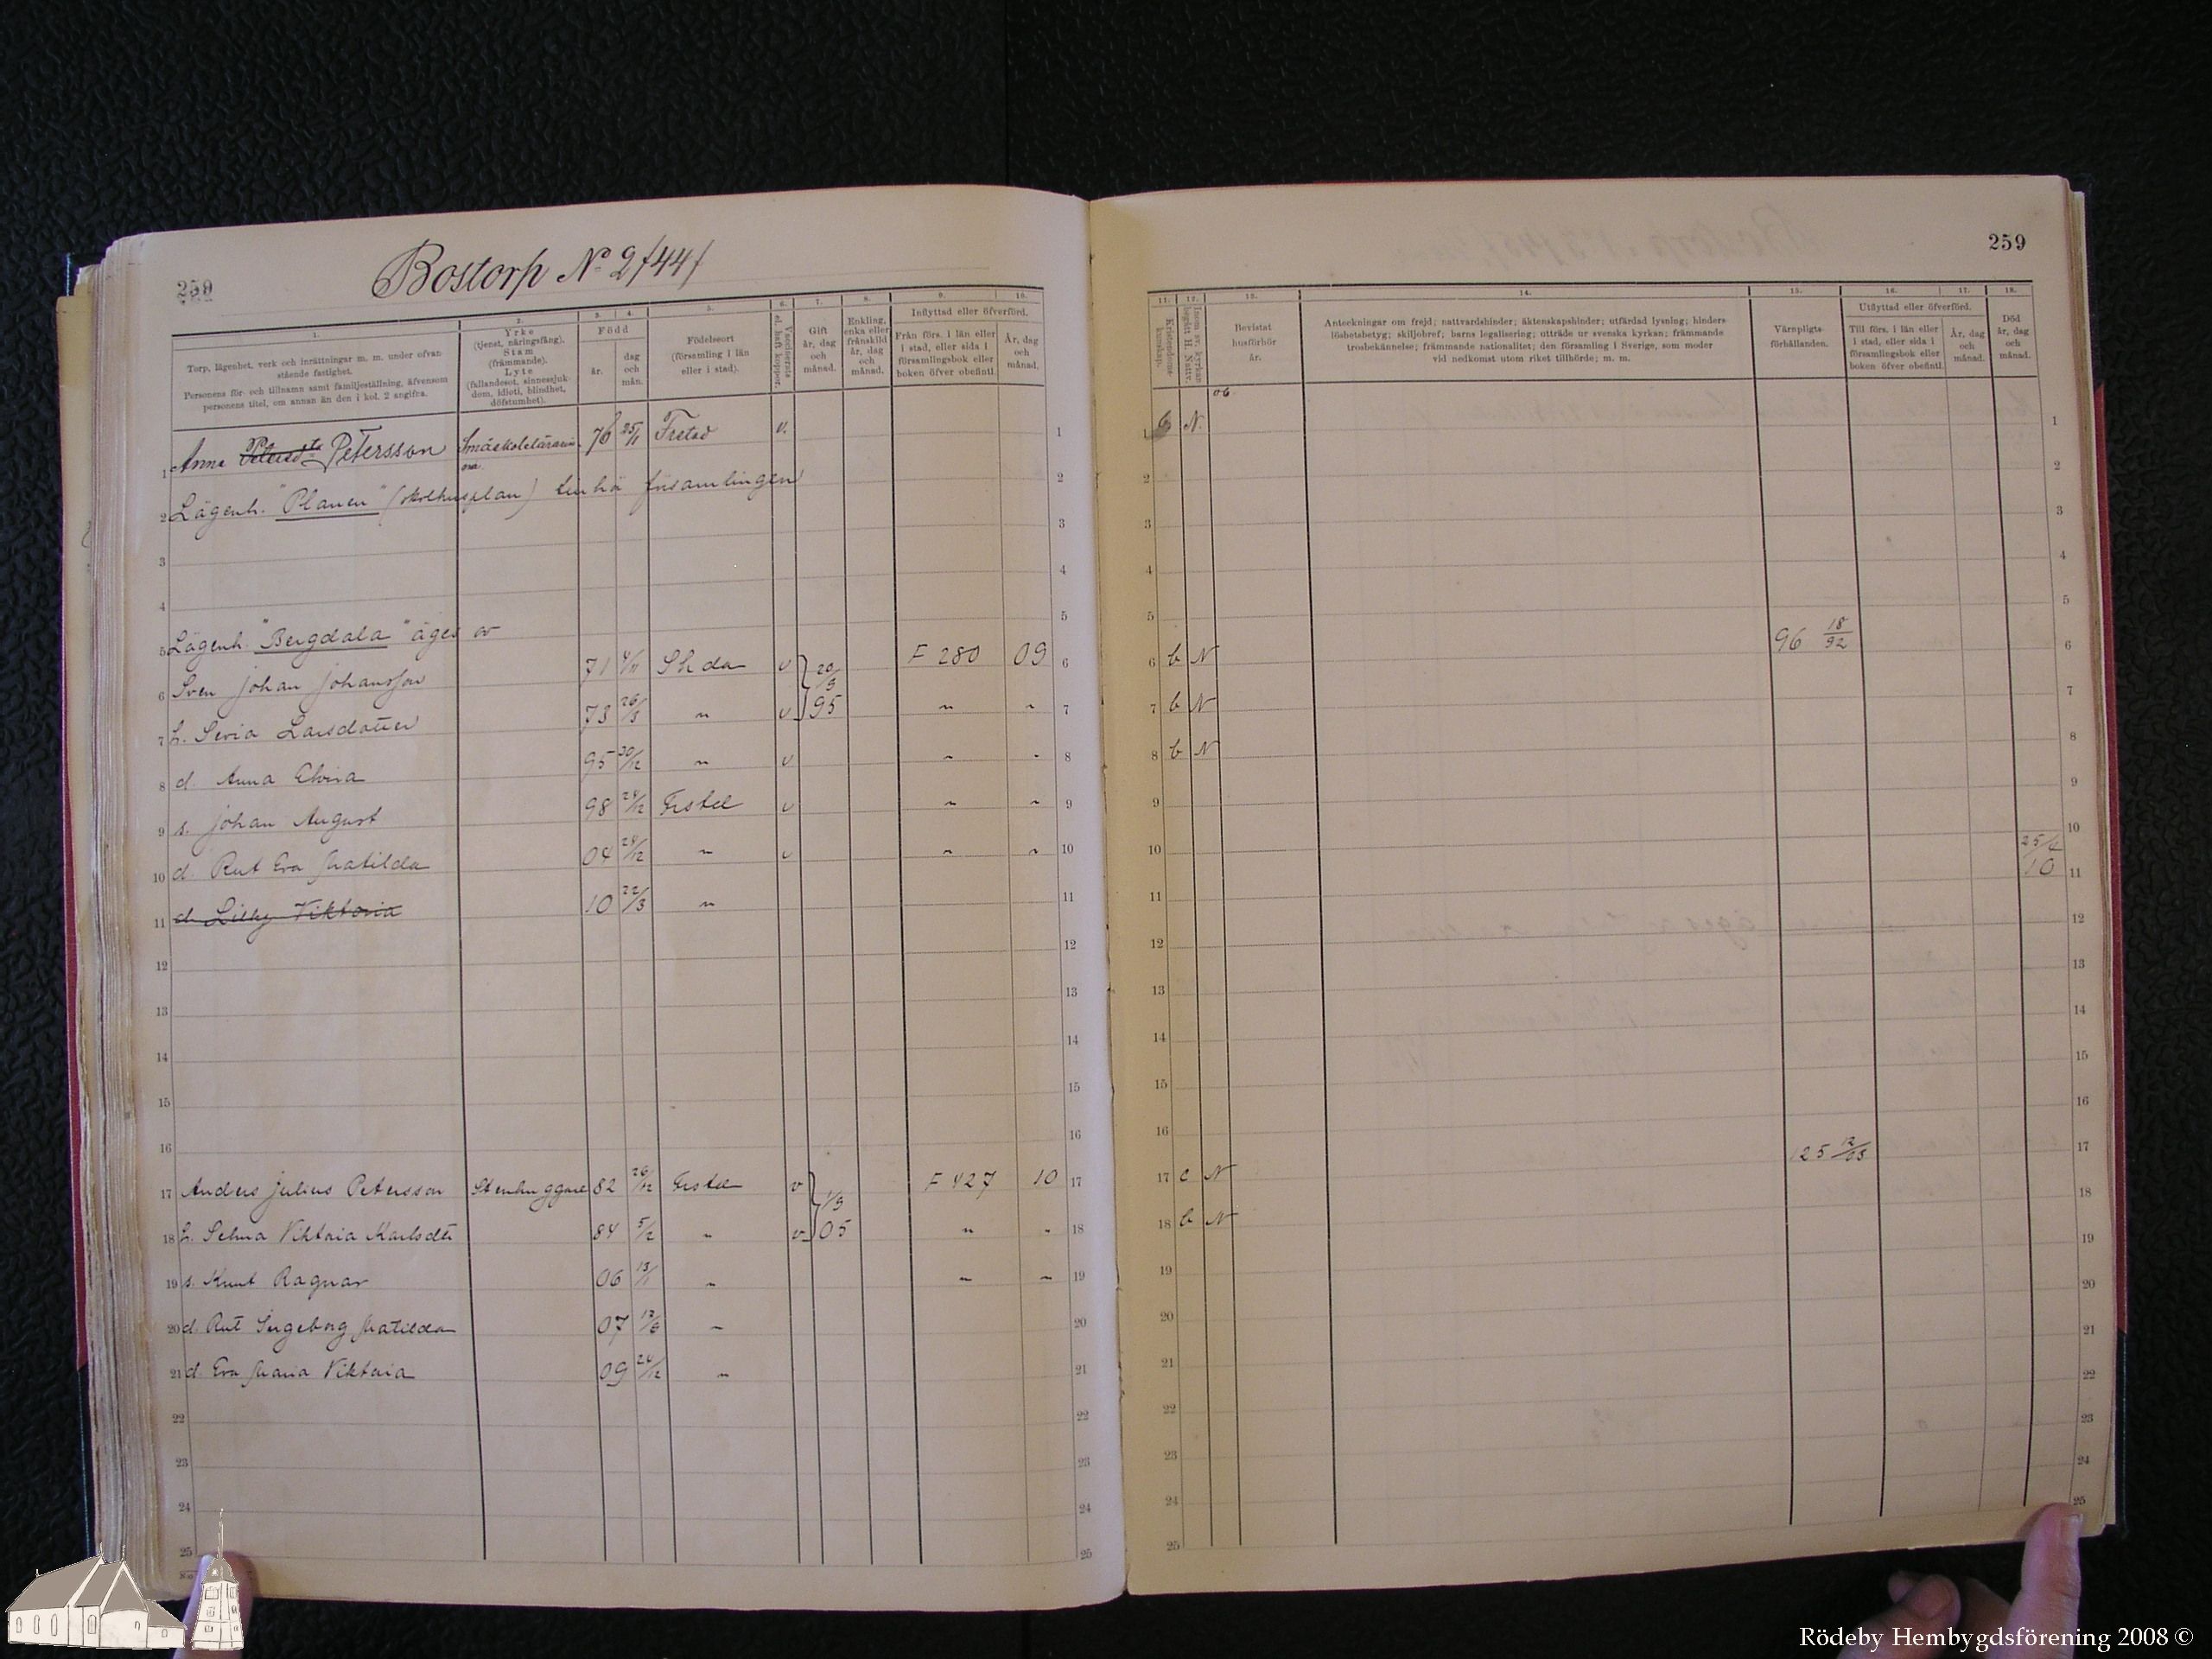 259
Bostorp No 2 /44/
1.
Torp, lägenhet, verk och inrättningar m. m. under ofvan
stående fastighet.
Personens för- och tillnamn samt familjeställning, äfvensom
personens titel, om annan än den i kol. 2 angifna.
2.
Yrke
(tjenst, näringsfång).
Stam
(främmande).
Lyte
(fallandesot, sinnessjuk-
dom, idioti, blindhet,
döfstumhet).
3. 4.
Född
år.
dag
och
mån.
5.
Födelseort
(församling i län
eller i stad).
6.
Vaccinerats
el. haft koppor.
7.
Gift
år, dag
och
månad.
8.
Enkling,
enka eller
frånskild
år, dag
och
månad.
9. 10.
Inflyttad eller öfverförd.
Från förs. i län eller
i stad, eller sida i
församlingsbok eller
boken öfver obefintl.
År, dag
och
månad.
1 Anna Petersson Småskolelärarin- 76 25/1 Fristad v. 1
2 Lägenh. "Planen" (skolhusplan) församlingen 2
3 3
4 4
5 Lägenh. "Bergdala" äges av 5
6 Sven Johan Johansson 71 v 20/9 F 280 09 6
7 h. Larsdotter 73 26/3 " v 95 " " 7
8 d. Anna Elvira 95 30/12 " v " " 8
9 s. Johan August 98 24/12 v " " 9
10 d. Rut Eva Matilda 04 24/12 " v " " 10
11 d. Lilly Viktoria 10 22/3 " 11
12 12
13 13
14 14
15 15
16 16
17 Anders Julius Petersson Stenhuggare 82 26/12 v 1/9 F 427 10 17
18 h. Selma Viktoria Karlsdtr 84 5/12 " v 05 " " 18
19 s. Knut Ragnar 06 13/1 " " " 19
20 d. Rut Ingeborg Matilda 07 12/6 " 20
21 d. Eva Maria Viktoria 09 24/12 " 21
22 22
23 23
24 24
25 25
259
11.
Kristendoms-
kunskap.
12.
Inom sv. kyrkan
begått H. Nattv.
13.
Bevistat
husförhör
år.
14.
Anteckningar om frejd; nattvardshinder; äktenskapshinder; utfärdad lysning; hinders-
löshetsbetyg; skiljobref; barns legalisering; utträde ur svenska kyrkan; främmande
trosbekännelse; främmande nationalitet; den församling i Sverige, som moder
vid nedkomst utom riket tillhörde; m. m.
15.
Värnpligts-
förhållanden.
16. 17.
Utflyttad eller öfverförd.
Till förs. i län eller
i stad, eller sida i
församlingsbok eller
boken öfver obefintl.
År, dag
och
månad.
18.
Död
år, dag
och
månad.
06
1 b N. 1
2 2
3 3
4 4
5 5
6 b N 96 18/92 6
7 b N 7
8 b N 8
9 9
10 10
11 25/4 10 11
12 12
13 13
14 14
15 15
16 16
17 c N 125 17
18 b N 18
19 19
20 20
21 21
22 22
23 23
24 24
25 25
Rödeby Hembygdsförening 2008 ©